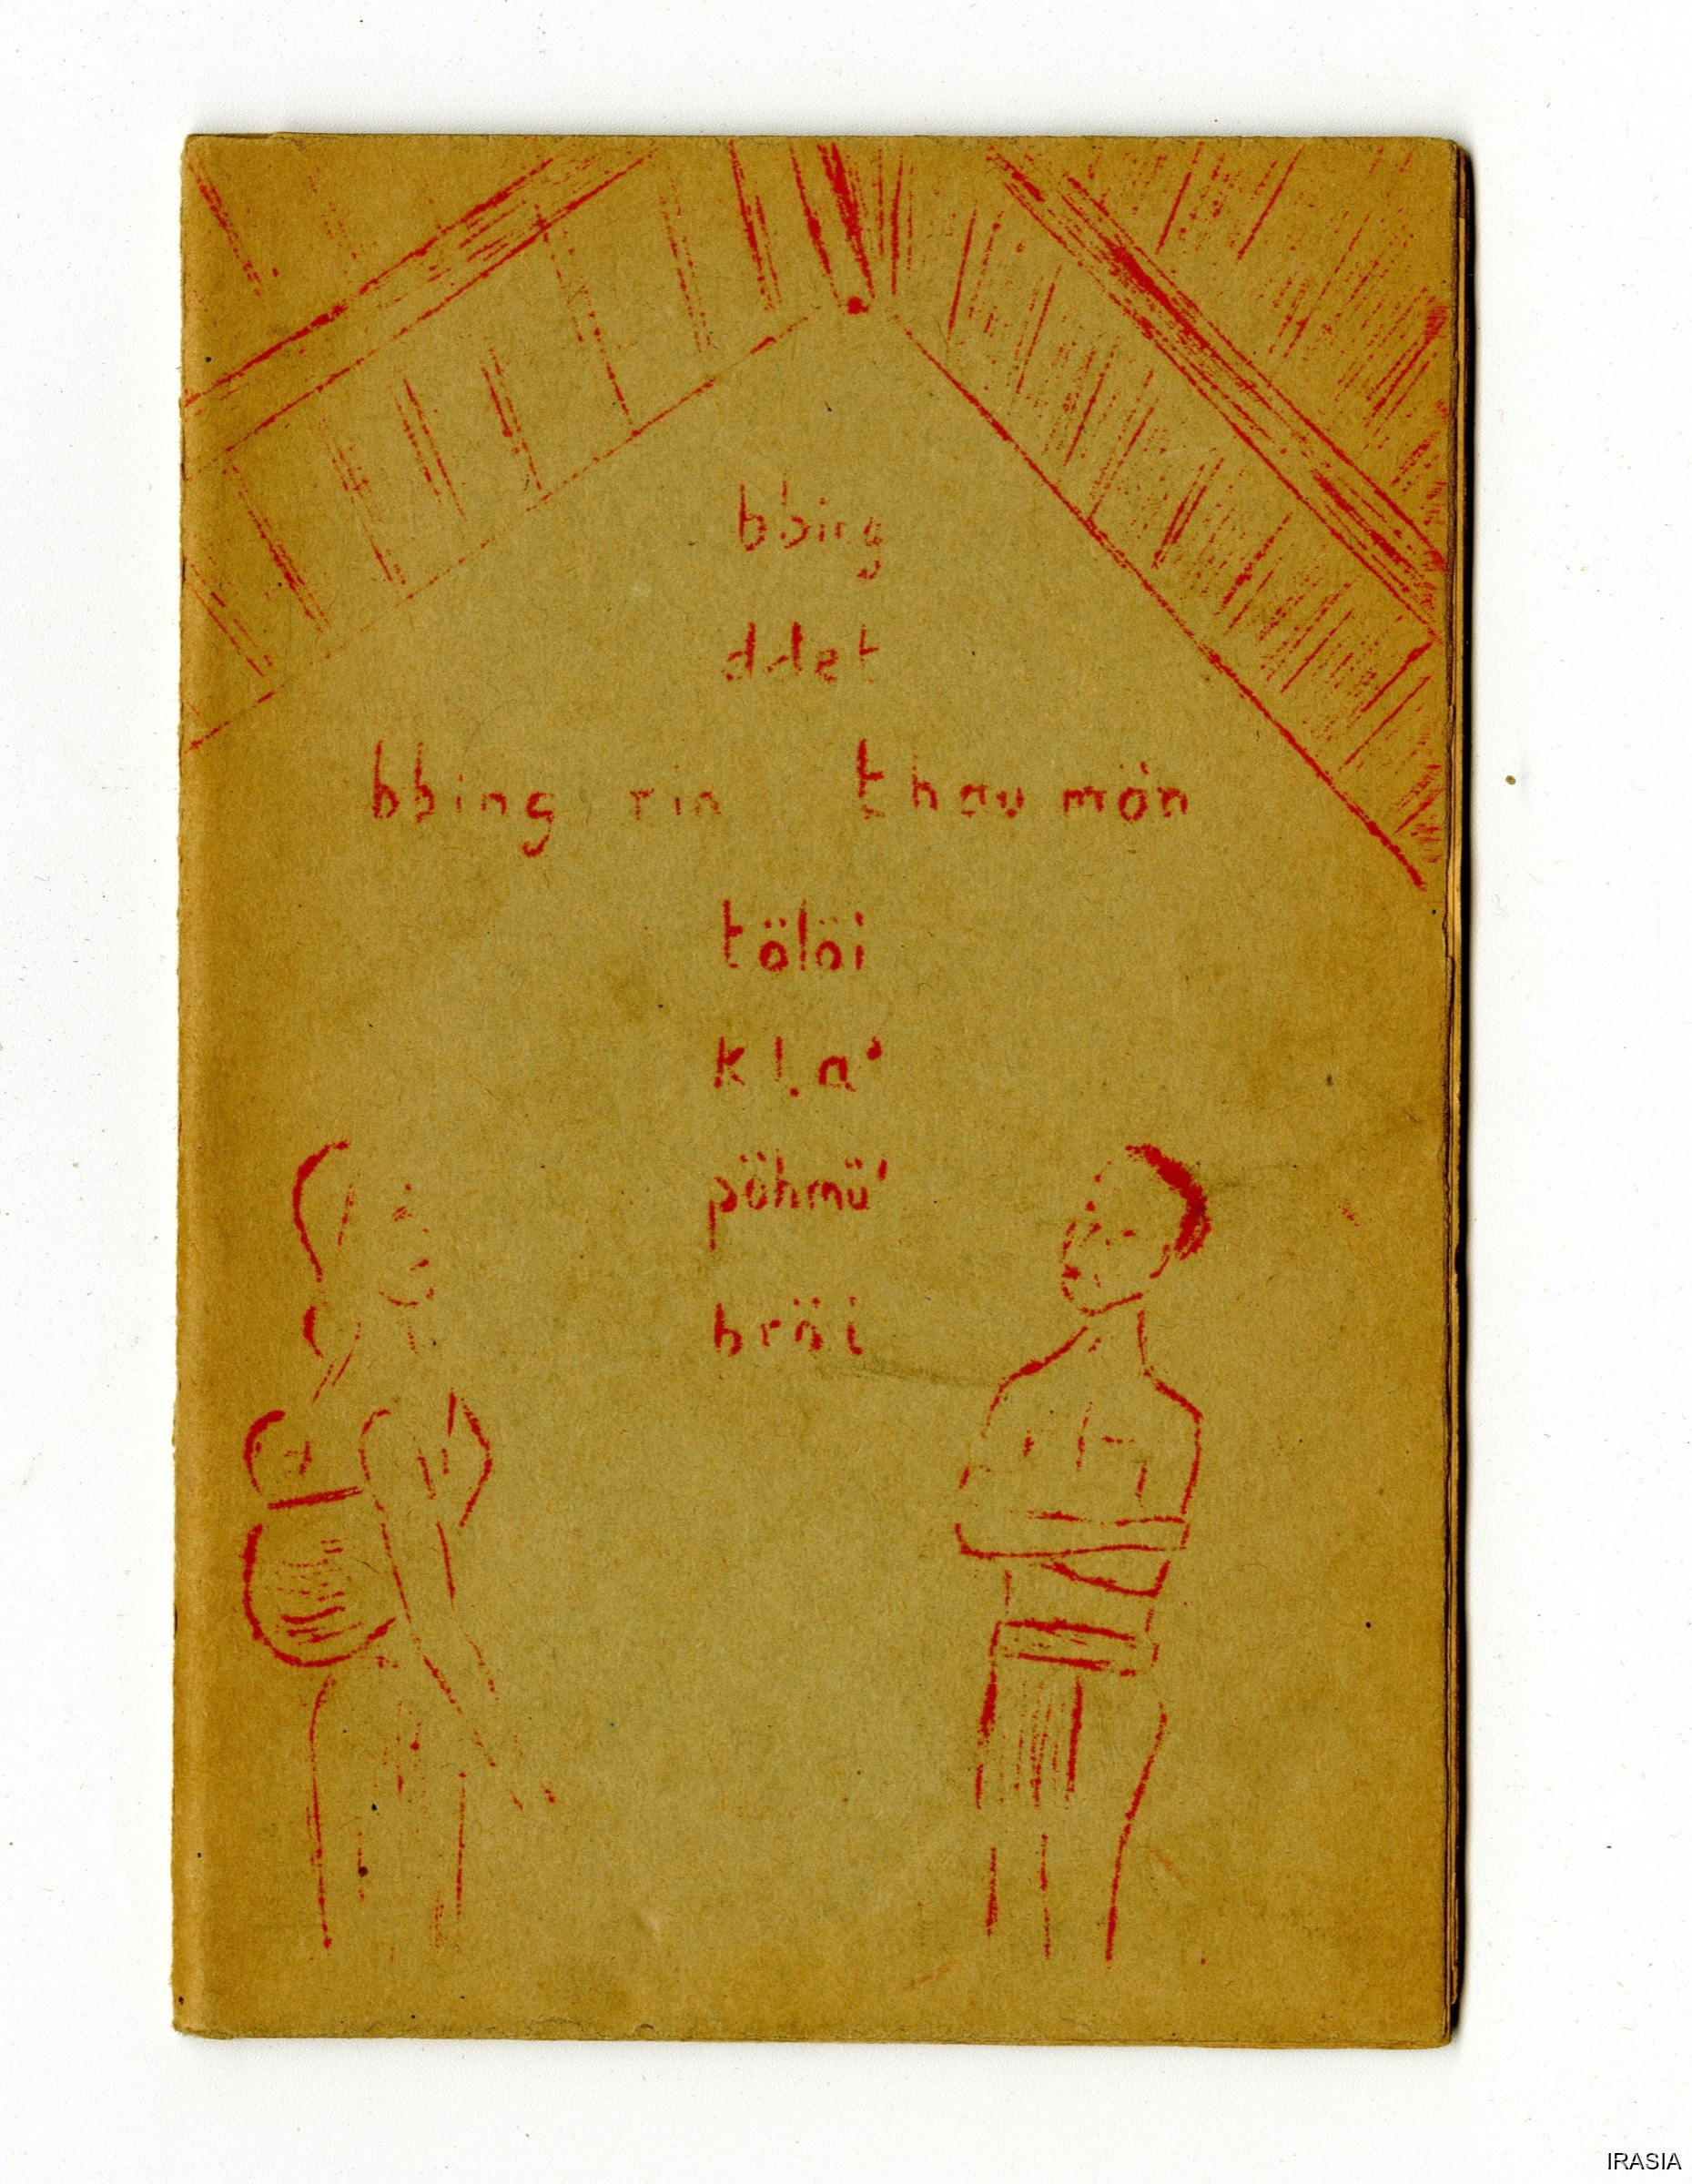 bbing
ddet
bbing rin thau mön
tölöi
kḷa'
pöhmü'
bröi
IRASIA